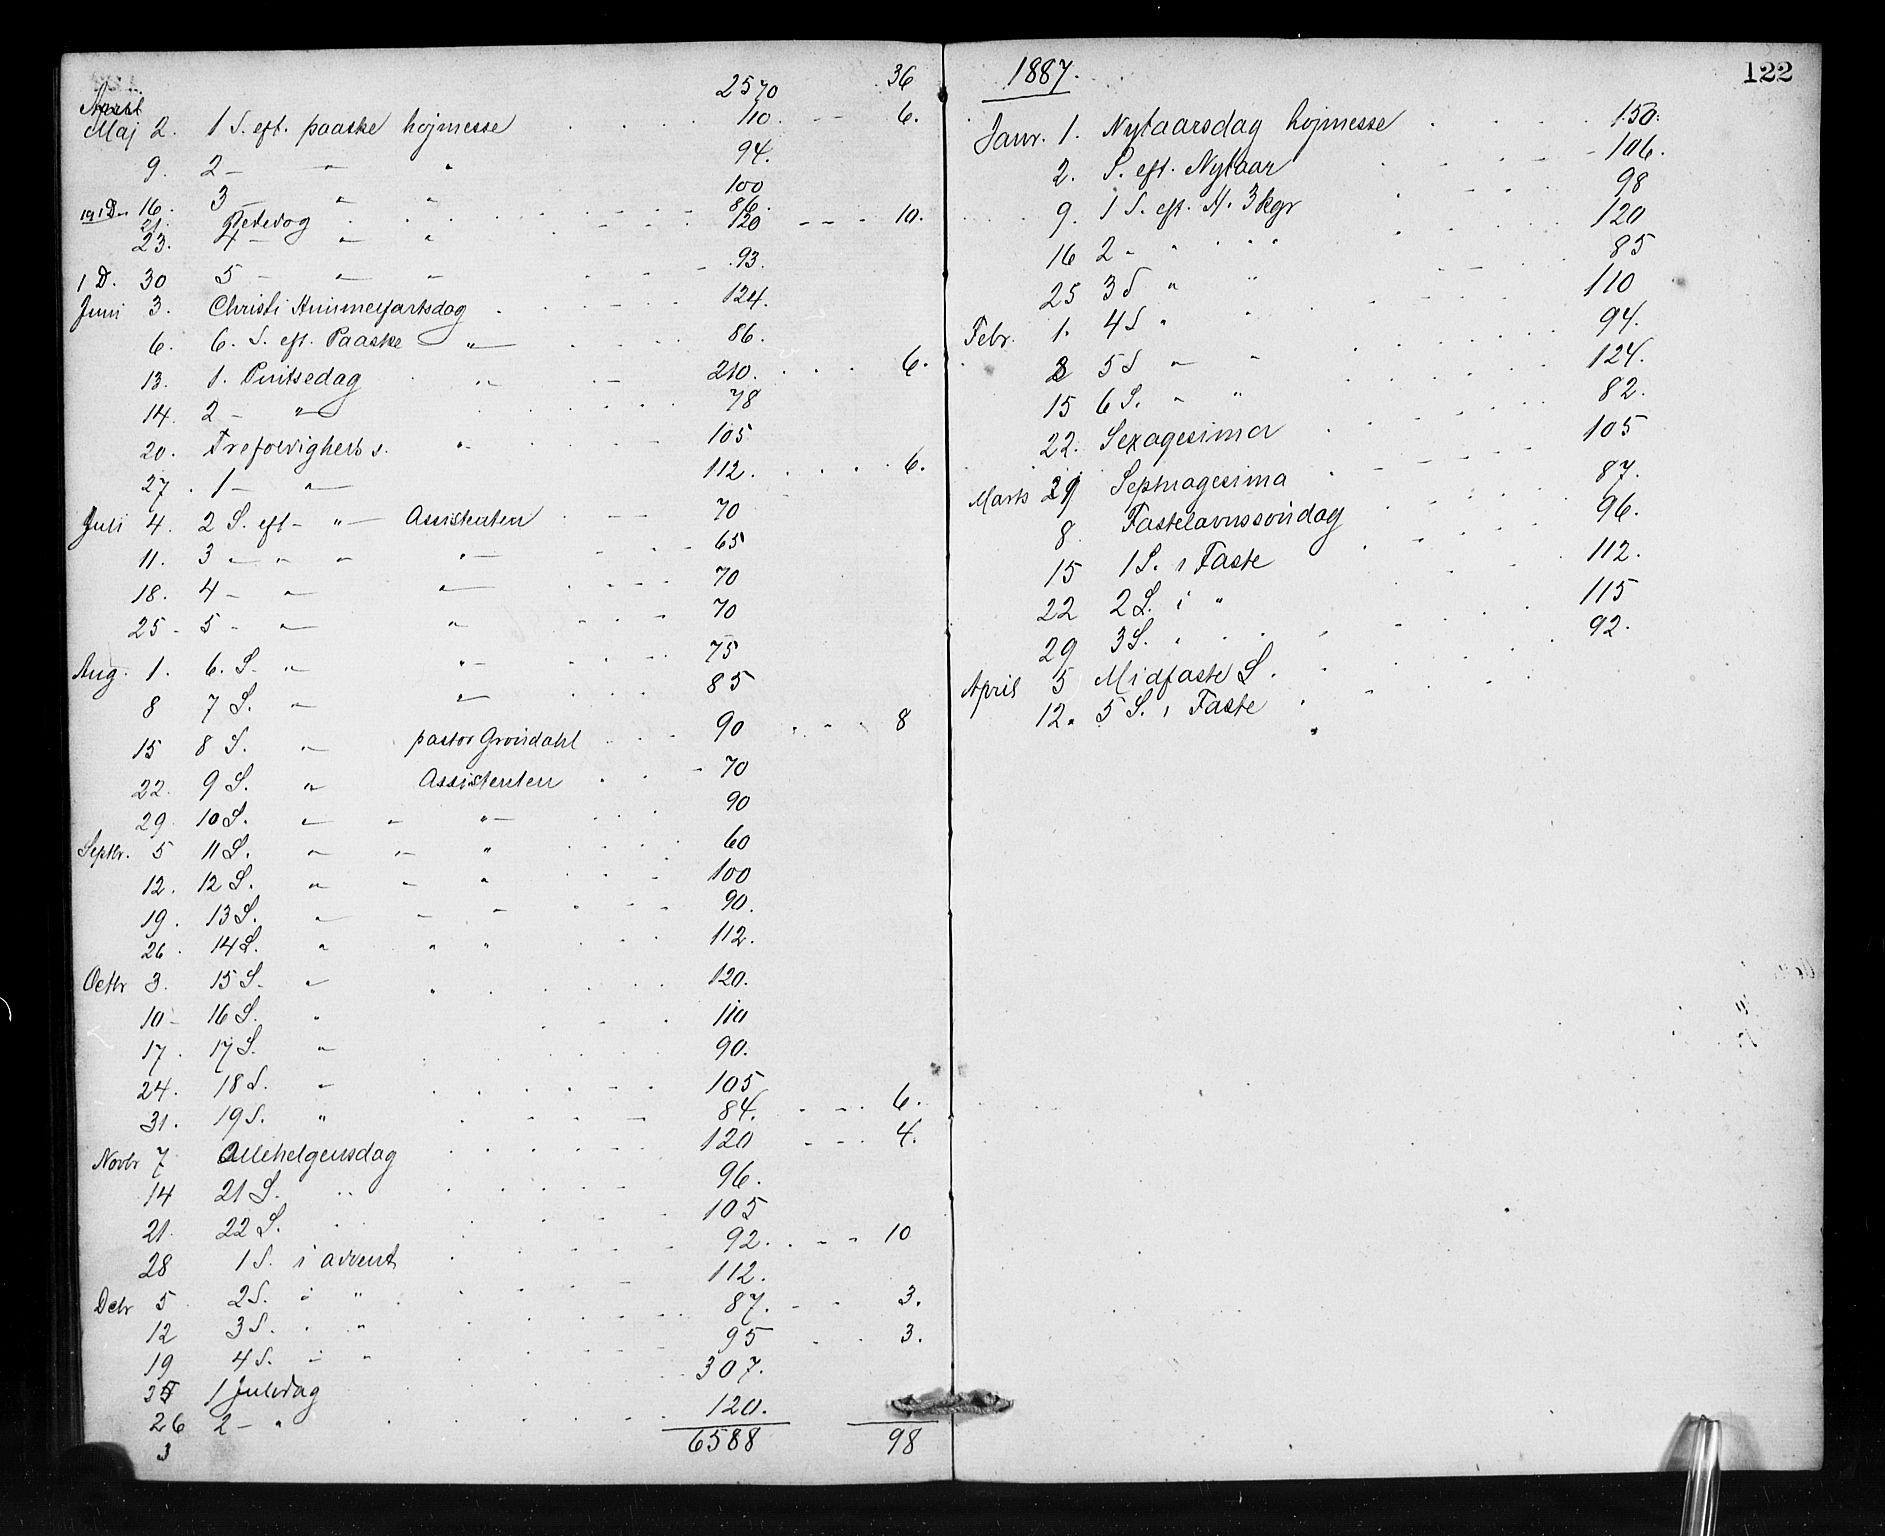 2570 36
April
Maj 2. 1 S. eft. paaske højmesse 110. 6.
9. 2 – " " 94.
16. 3 – " " 100
21. Bededog 86.
23. 4 – " " 120 10.
1 D. 30 5 – " " 93.
Juni 3. Christi Himmelfartsdag 124.
6. 6. S. eft. Paaske " 86.
13. 1. Pintsedag " 210. 6.
14. 2 – " 78
20. Trefoldigheds s. " 105
27. 1 – " 112. 6.
Juli 4. 2 S. eft – " – Assistenten 70
11. 3 – " " " 65
18. 4 – " " 70
25 – 5 – " " 70
Aug. 1. 6. S. " " 75
8 7 S. " " 85
15 8 S. " pastor Grøndahl 90 8
22. 9 S. " Assistenten 70
29. 10 S. " " " 90
Septbr. 5 11 S. " " " 60
12. 12 S. " " " 100
19. 13 S. " " " 90.
26. 14 S. " " " 112.
Octbr 3. 15 S. " 120.
10 – 16 S. " 110
17. 17 S. " 90.
24. 18 S. " 105
31. 19 S. " 84. 6.
Novbr 7 Allehelgensdag 120 4.
14 21 S. " 96.
21. 22 S. 105
28 1 S. i advent 92. 10
Debr 5 2 S. i " 112.
12 3 S. " " 87. 3.
19 4 S. i " 95 3.
25 1 Juledag 307.
26 2 – " 120.
3 6588 98
122
1887.
Janr. 1. Nytaarsdag højmesse 150.
2. S. eft. Nytaar 106.
9. 1 S. eft. H. 3 kgr 98
16 2 – " " 120
25 3 S " " 85
Febr. 1. 4 S " " 110
8 5 S " " 94.
15 6 S. " " 124.
22. Sexagesima 82.
Marts 1 Septuagesima 105
8 Fastelavnssøndag 87.
15 1 S. i Faste 96.
22 2 S. i " 112.
29 3 S. " 115
April 5 Midfaste S. 92.
12. 5 S. i Faste